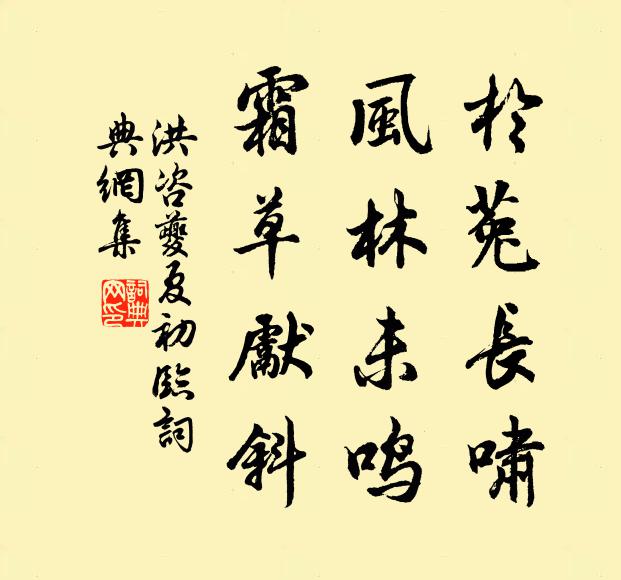 於菟長嘯
風林未鳴
霜草獻斜
洪咨夔夏初臨詞
典網集
詞典網印